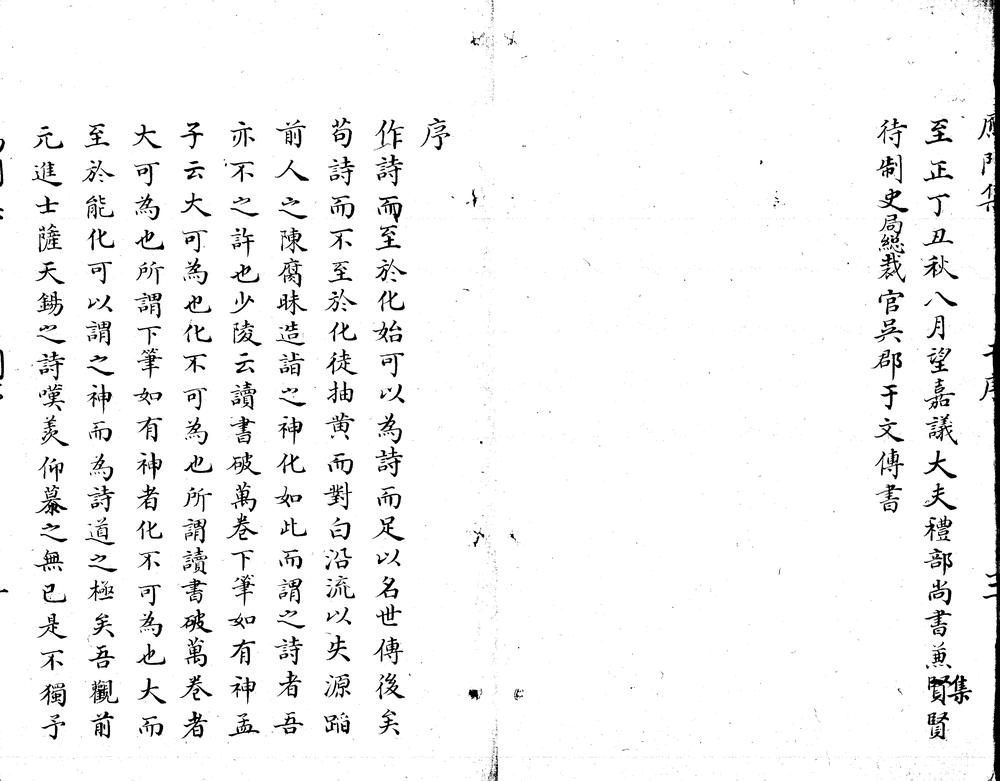 至正丁丑秋八月望嘉議大夫禮部尚書兼賢集賢
待制史局總裁官吳郡于文傳書
序
作詩而至於化始可以為詩而足以名世傳後矣
苟詩而不至於化徒抽黄而對白沿流以失源蹈
前人之陳腐昧造詣之神化如此而謂之詩者吾
亦不之許也少陵云讀書破萬卷下筆如有神孟
子云大可為也化不可為也所謂讀書破萬卷者
大可為也所謂下筆如有神者化不可為也大而
至於能化可以謂之神而為詩道之極矣吾觀前
元進士薩天錫之詩嘆羨仰慕之無已是不獨予